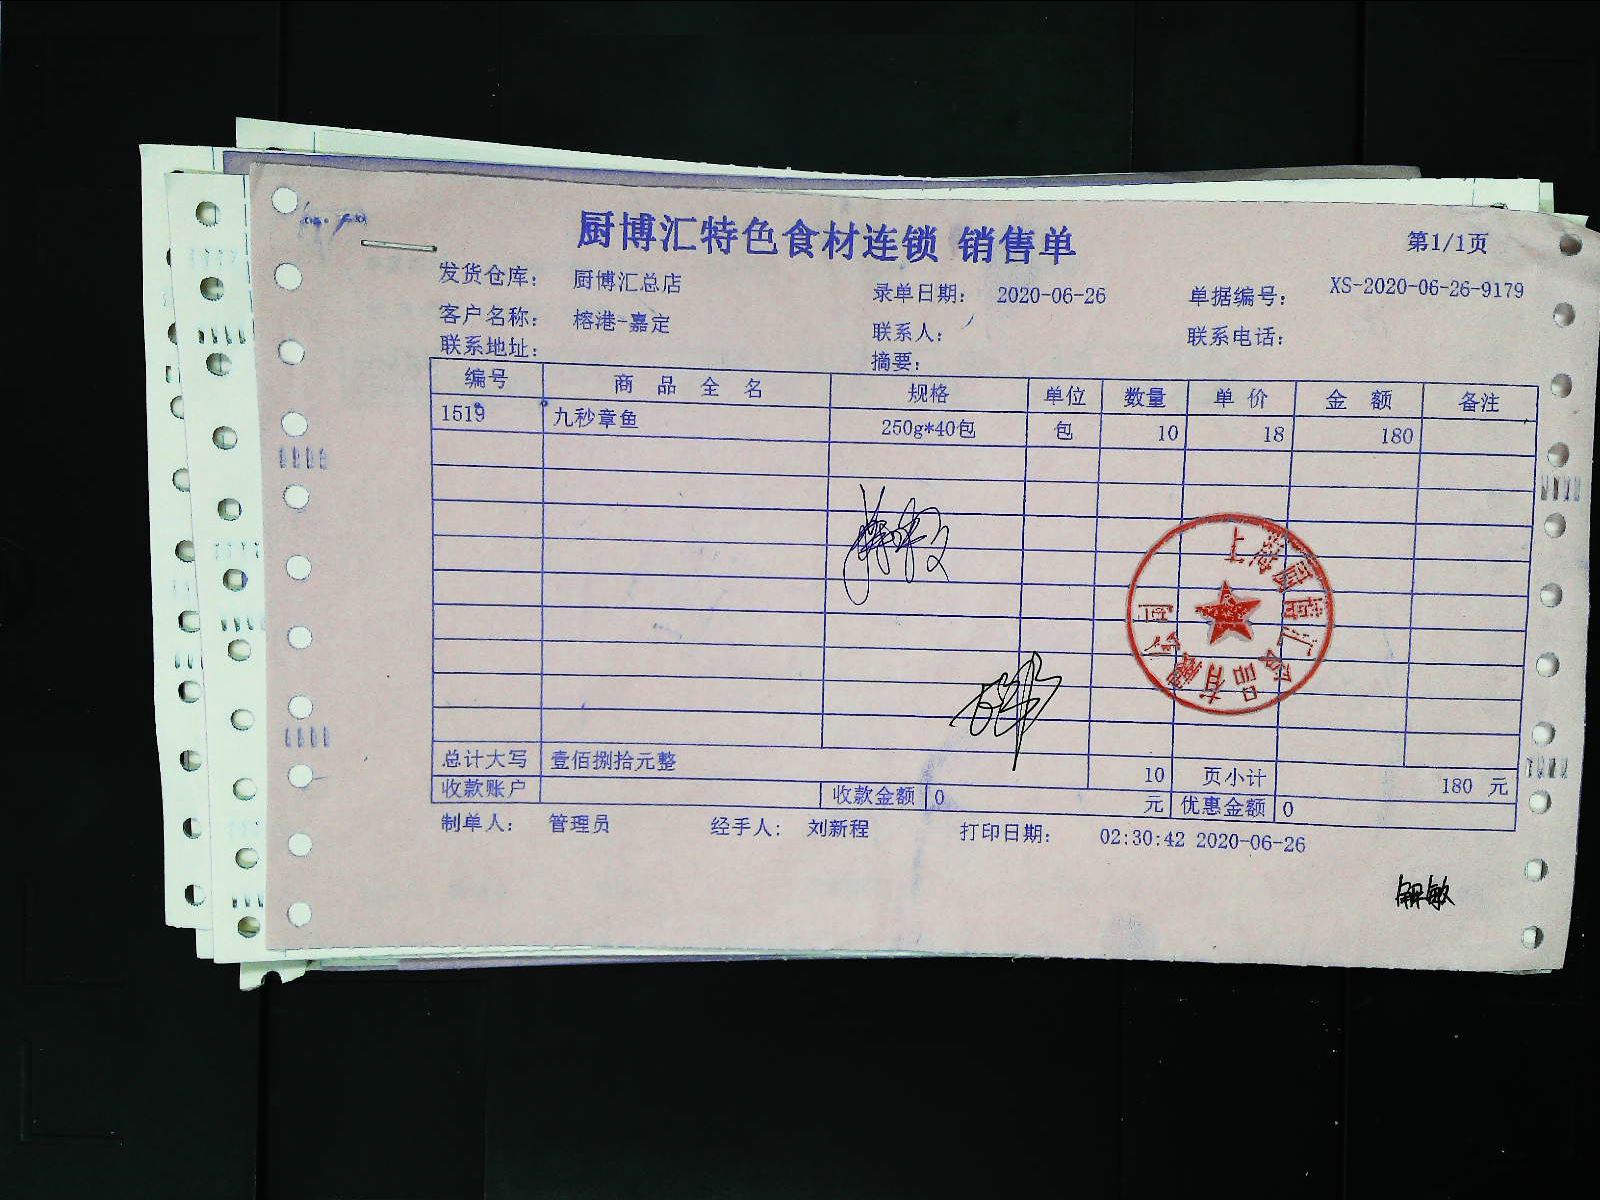 厨博汇特色食材连锁 销售单
第1/1页
发货仓库： 厨博汇总店
录单日期： 2020-06-26
单据编号： XS-2020-06-26-9179
客户名称： 榕港-嘉定
联系人：
联系电话：
联系地址：
摘要：
编号 商品全名 规格 单位 数量 单价 金额 备注
1519 九秒章鱼 250g*40包 包 10 18 180
总计大写 壹佰捌拾元整 10 页小计 180 元
收款账户 收款金额 0 元 优惠金额 0
制单人： 管理员 经手人： 刘新程 打印日期： 02:30:42 2020-06-26